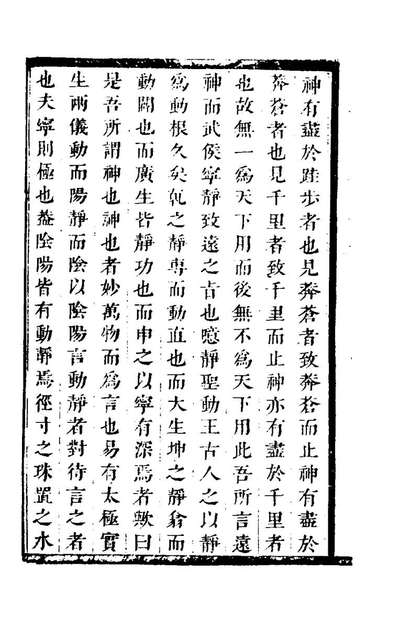 神有盡於跬步者也見莽蒼者致莽蒼而止神有盡於
莽蒼者也見千里者致千里而止神亦有盡於千里者
也故無一為天下用而後無不為天下用此吾所言遠
神而武侯寧靜致遠之旨也噫靜聖動王古人之以靜
為動根久矣乾之靜專而動直也而大生坤之靜翕而
動闢也而廣生皆靜功也而申之以寧有深焉者歟曰
是吾所謂神也神也者妙萬物而為言也易有太極實
生兩儀動而陽靜而陰以陰陽言動靜者對待言之者
也夫寧則極也葢陰陽皆有動靜焉徑寸之珠置之水